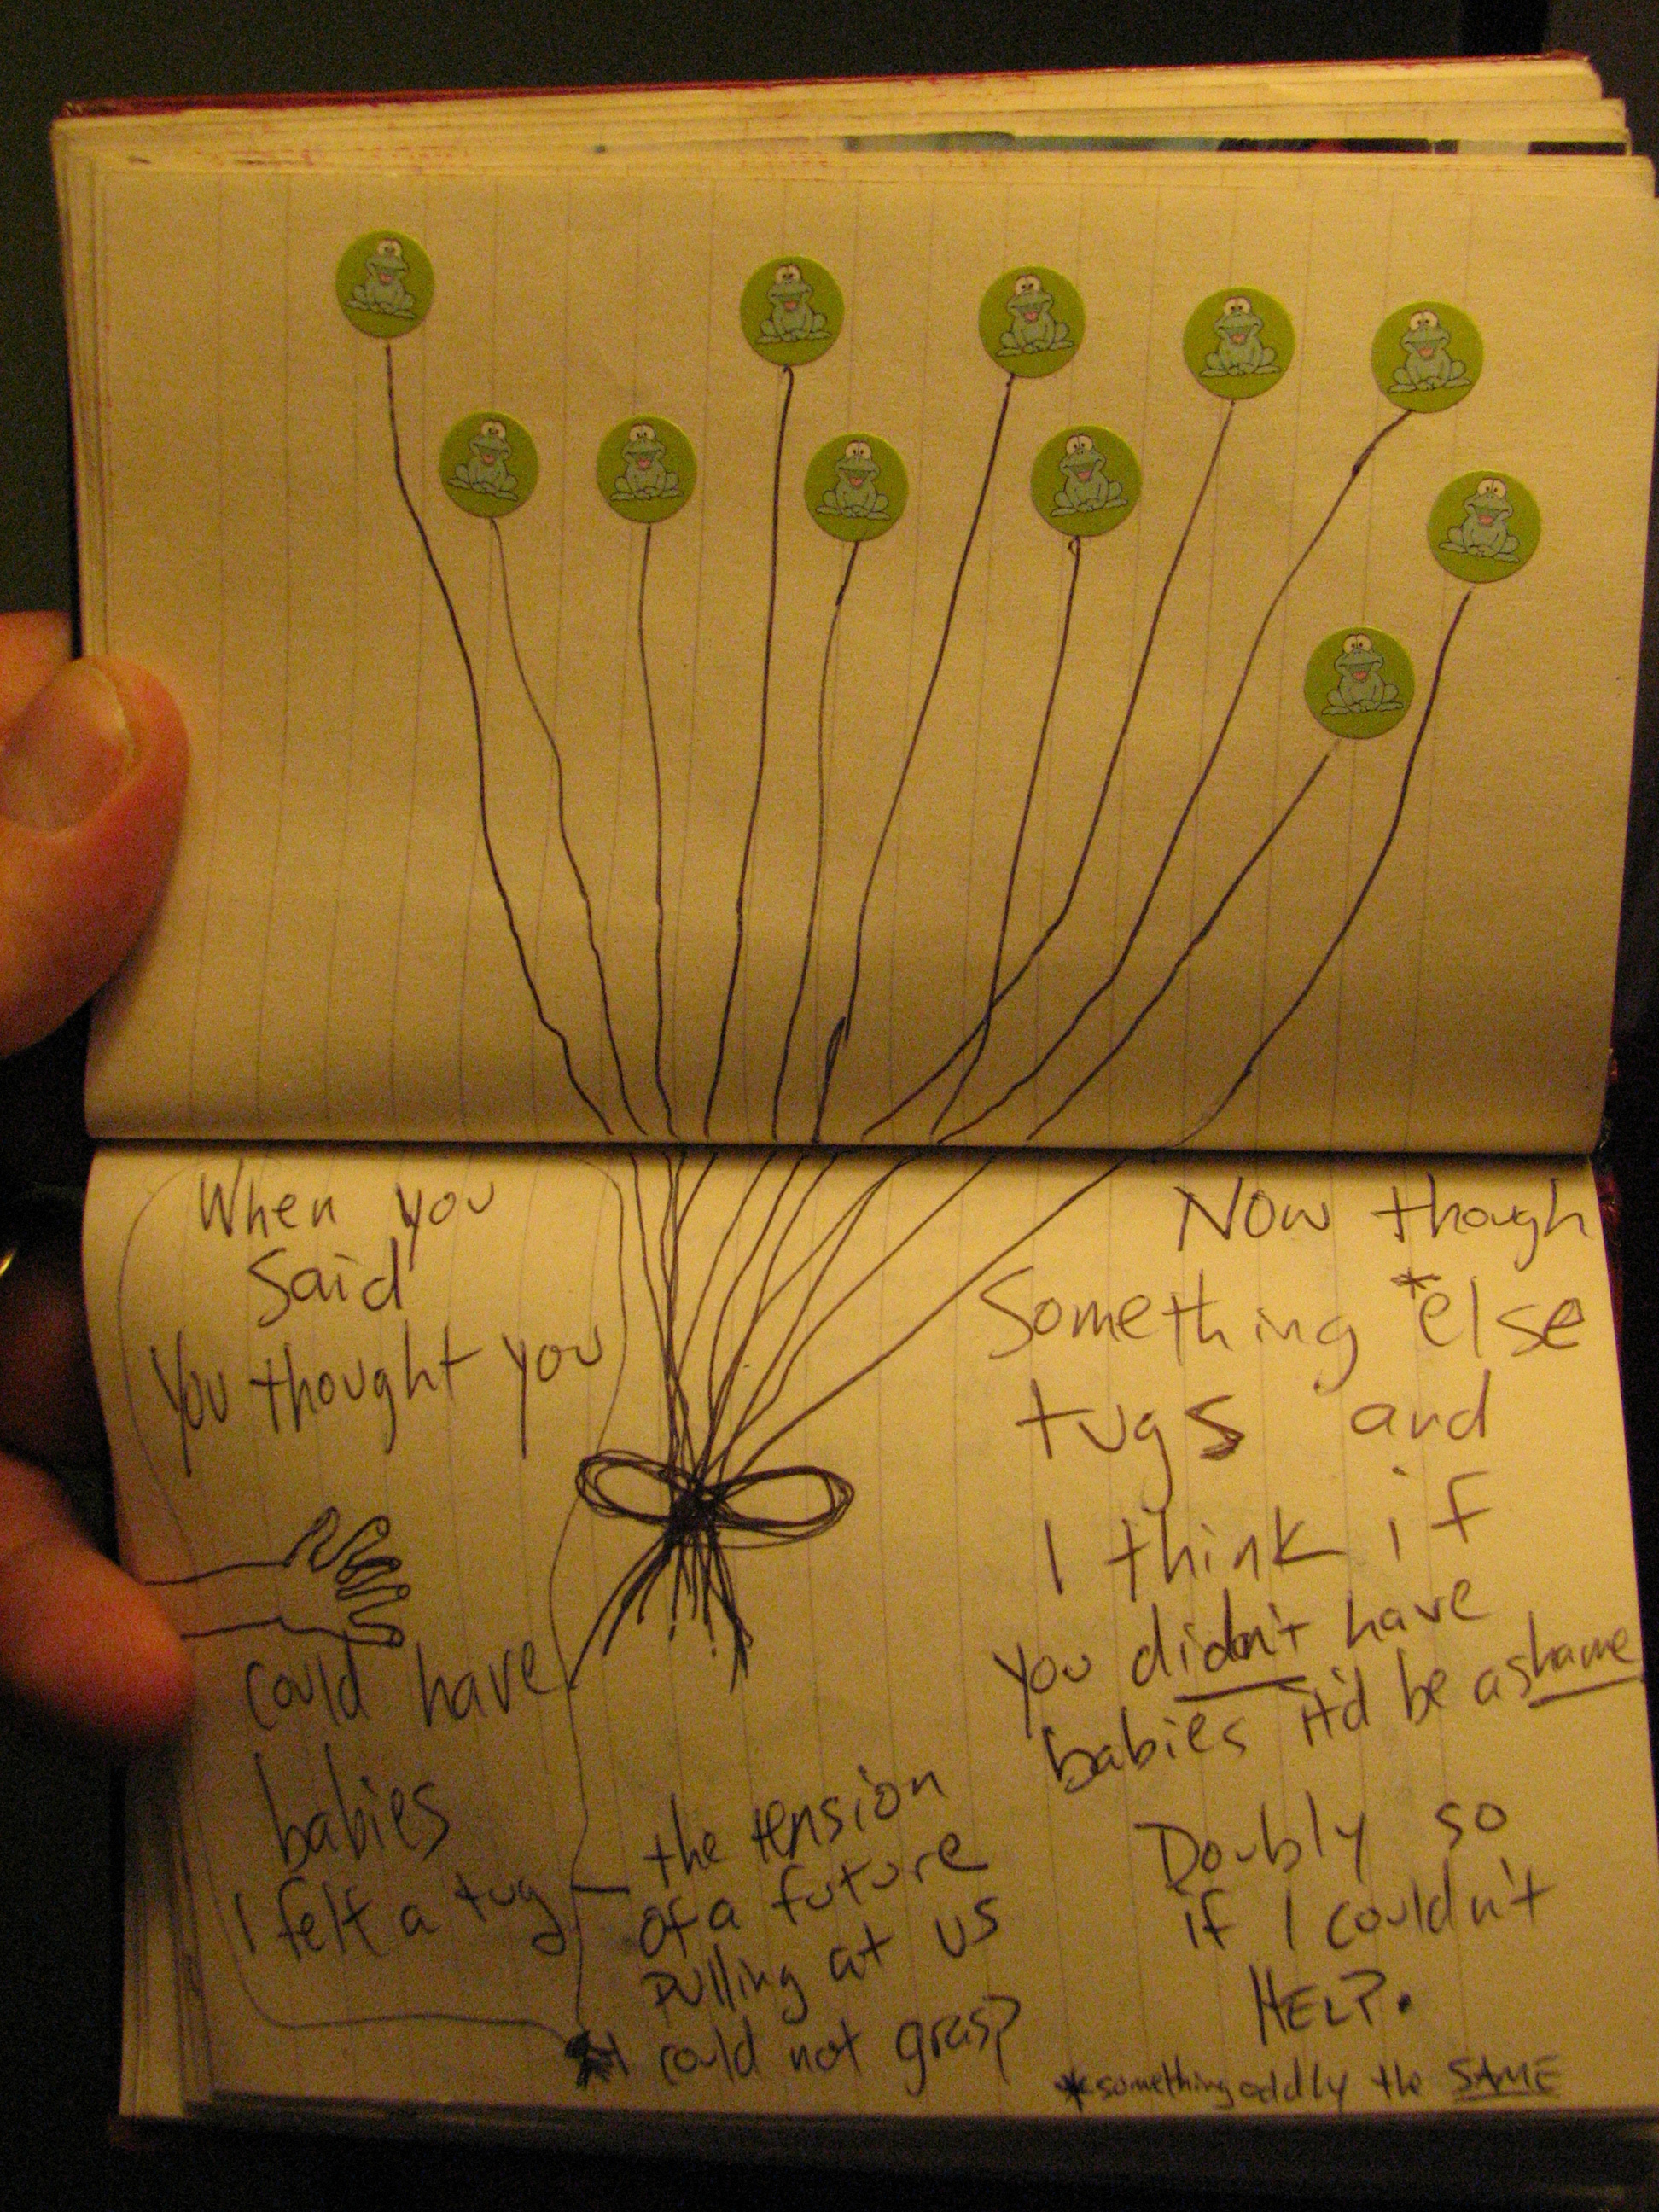 When you
Said
You thought you
could have
babies
I felt a tug
the tension
of a future
pulling at us
I could not grasp
Now though
Something *else
tugs and
I think if
you didn't have
babies it'd be a shame
Doubly so
if I couldn't
HELP.
*something oddly the SAME